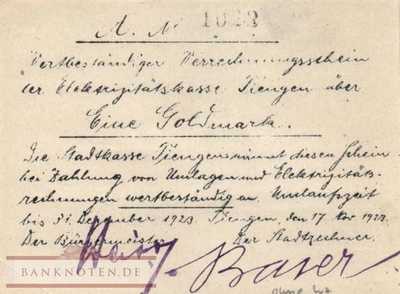 A. No 1022
Wertbeständiger Verrechnungsschein
der Elektrizitätskasse Tiengen über
Eine Goldmark.
Die Stadtkasse Tiengen nimmt diesen Schein
bei Zahlung von Umlagen und Elektrizitäts-
rechnungen wertbeständig an. Umlaufszeit
bis 31. Dezember 1923. Tiengen, den 17. Nov 1923.
Der Bürgermeister Der Stadtrechner.
Baser
BANKNOTEN.DE ohne Wz